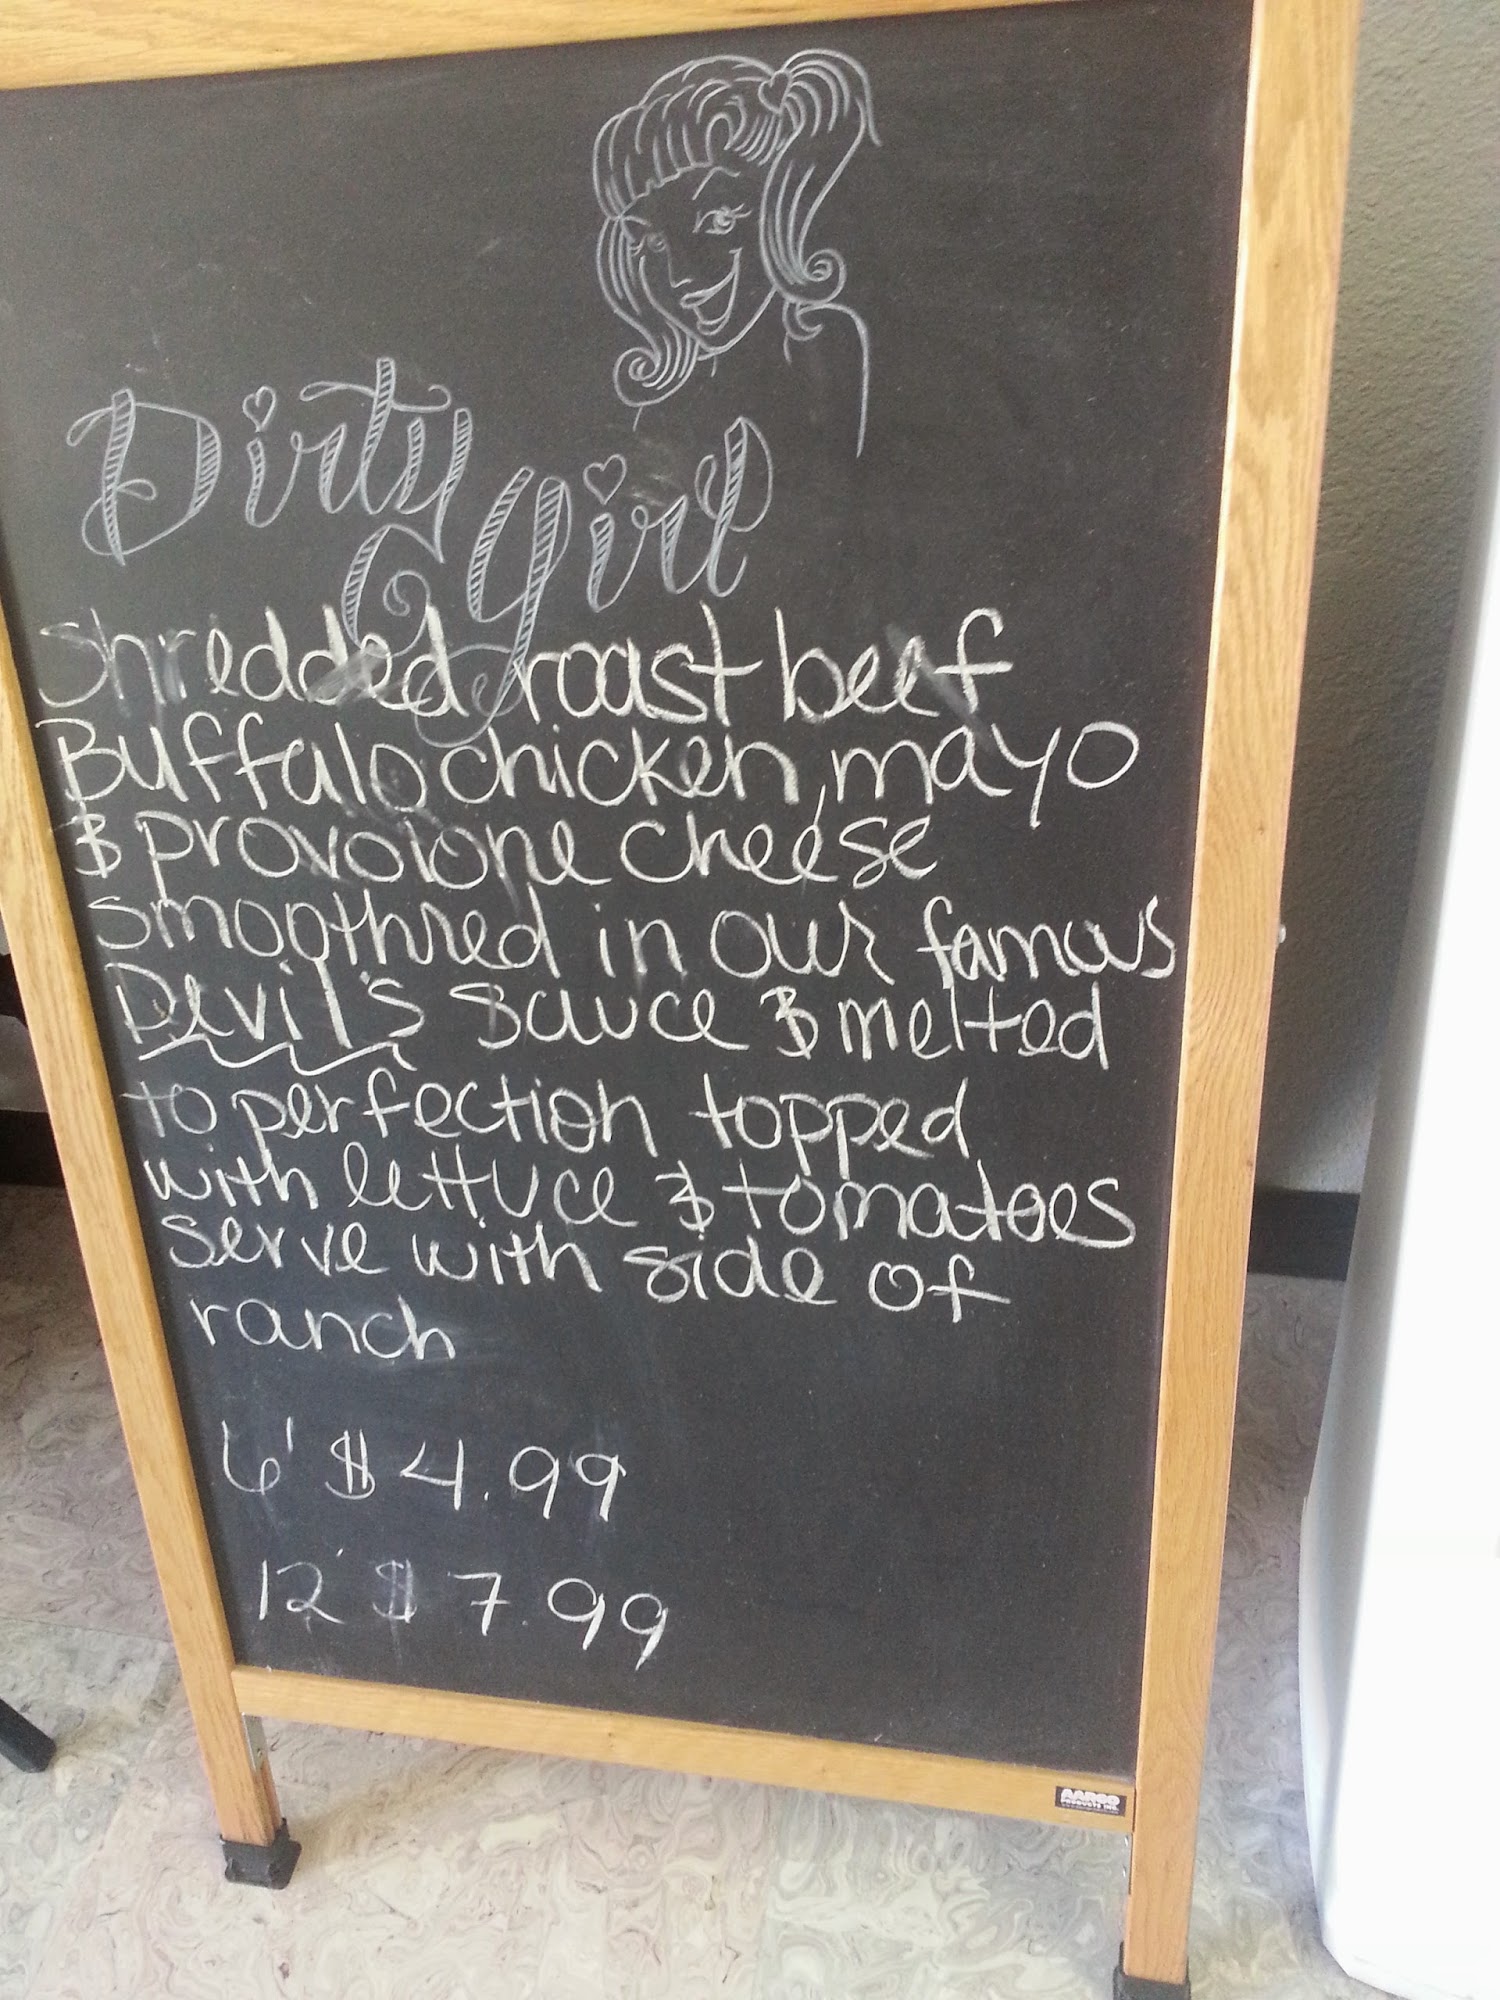 Dirty
Girl
shredded roast beef
Buffalo chicken, mayo
& provolone cheese
smoothred in our famous
Devil's sauce & melted
to perfection topped
with lettuce & tomatoes
serve with side of
ranch
6' $ 4.99
12' $ 7.99
AARCO
PRODUCTS INC.